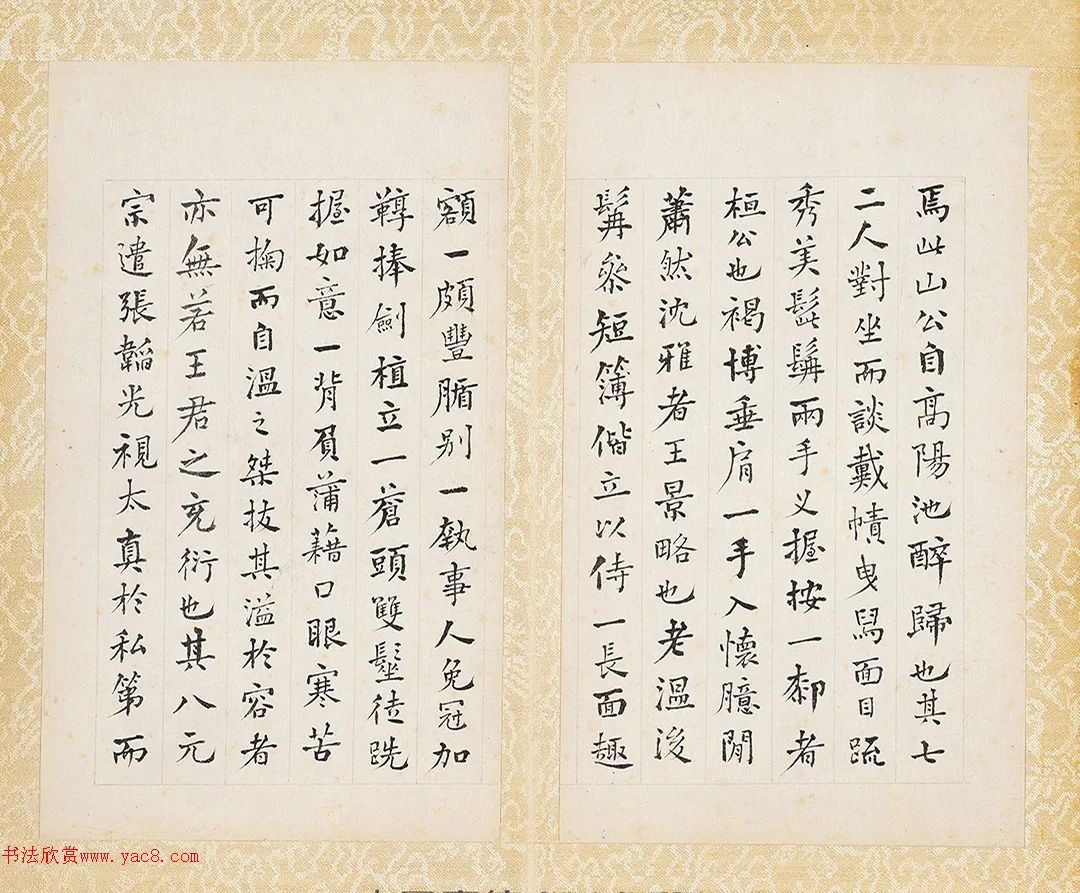 焉此山公自高陽池醉歸也其七
二人對坐而談戴幘曳舄面目踈
秀美髭髯兩手乂握按一膝者
桓公也褐博垂肩一手入懷臆閒
蕭然沈雅者王景略也老溫後
髯參短簿偕立以侍一長面趣
額一頗豐腯別一執事人免冠加
鞟捧劍植立一蒼頭雙髽徒跣
握如意一背負蒲藉口眼寒苦
可掬而自溫之桀技其溢於容者
亦無若王君之充衍也其八元
宗遣張韜光視太真於私第而
书法欣赏www.yac8.com